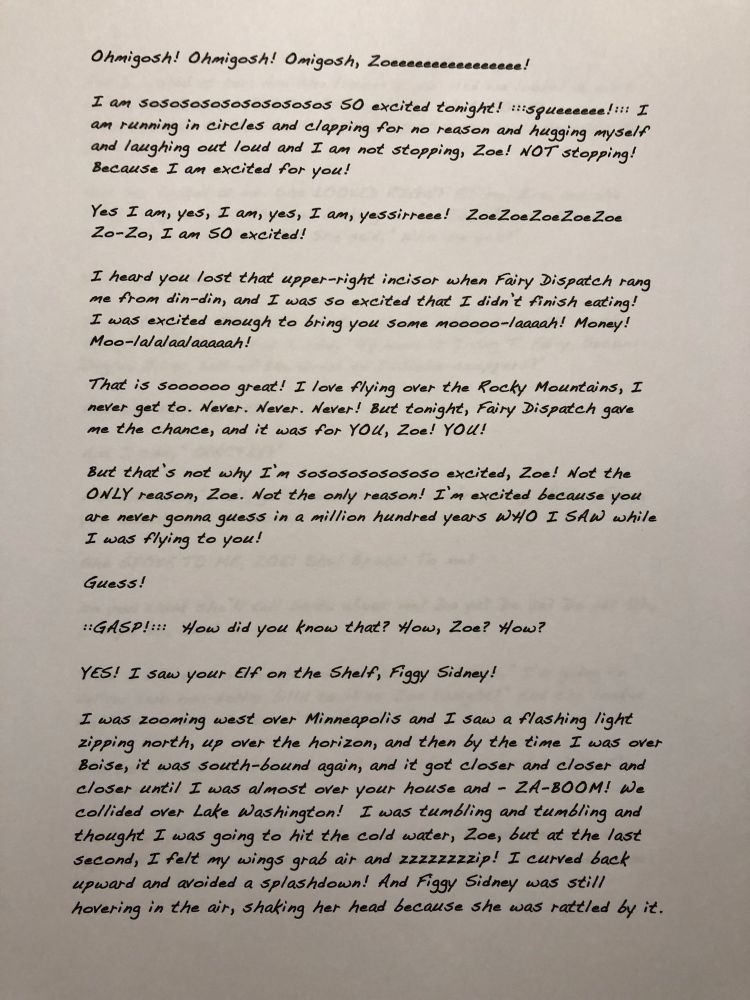 Ohmigosh! Ohmigosh! Omigosh, Zoeeeeeeeeeeeeeeee!
I am sosososososososososos SO excited tonight! :::squeeeeee!::: I
am running in circles and clapping for no reason and hugging myself
and laughing out loud and I am not stopping, Zoe! NOT stopping!
Because I am excited for you!
Yes I am, yes, I am, yes, I am, yessirreee! ZoeZoeZoeZoeZoe
Zo-Zo, I am SO excited!
I heard you lost that upper-right incisor when Fairy Dispatch rang
me from din-din, and I was so excited that I didn't finish eating!
I was excited enough to bring you some mooooo-laaaah! Money!
Moo-lalalaalaaaaah!
That is soooooo great! I love flying over the Rocky Mountains, I
never get to. Never. Never. Never! But tonight, Fairy Dispatch gave
me the chance, and it was for YOU, Zoe! YOU!
But that's not why I'm sososososososo excited, Zoe! Not the
ONLY reason, Zoe. Not the only reason! I'm excited because you
are never gonna guess in a million hundred years WHO I SAW while
I was flying to you!
Guess!
::GASP!::: How did you know that? How, Zoe? How?
YES! I saw your Elf on the Shelf, Figgy Sidney!
I was zooming west over Minneapolis and I saw a flashing light
zipping north, up over the horizon, and then by the time I was over
Boise, it was south-bound again, and it got closer and closer and
closer until I was almost over your house and - ZA-BOOM! We
collided over Lake Washington! I was tumbling and tumbling and
thought I was going to hit the cold water, Zoe, but at the last
second, I felt my wings grab air and zzzzzzzzip! I curved back
upward and avoided a splashdown! And Figgy Sidney was still
hovering in the air, shaking her head because she was rattled by it.